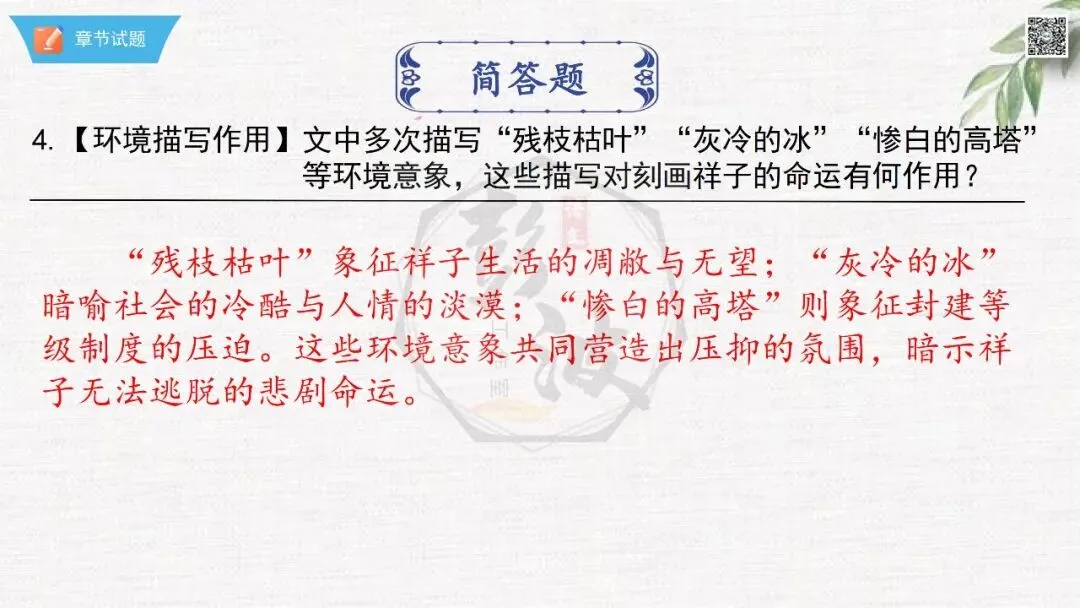 章节试题
简答题
4.【环境描写作用】文中多次描写“残枝枯叶”“灰冷的冰”“惨白的高塔”
等环境意象，这些描写对刻画祥子的命运有何作用？
“残枝枯叶”象征祥子生活的凋敝与无望；“灰冷的冰”
暗喻社会的冷酷与人情的淡漠；“惨白的高塔”则象征封建等
级制度的压迫。这些环境意象共同营造出压抑的氛围，暗示祥
子无法逃脱的悲剧命运。